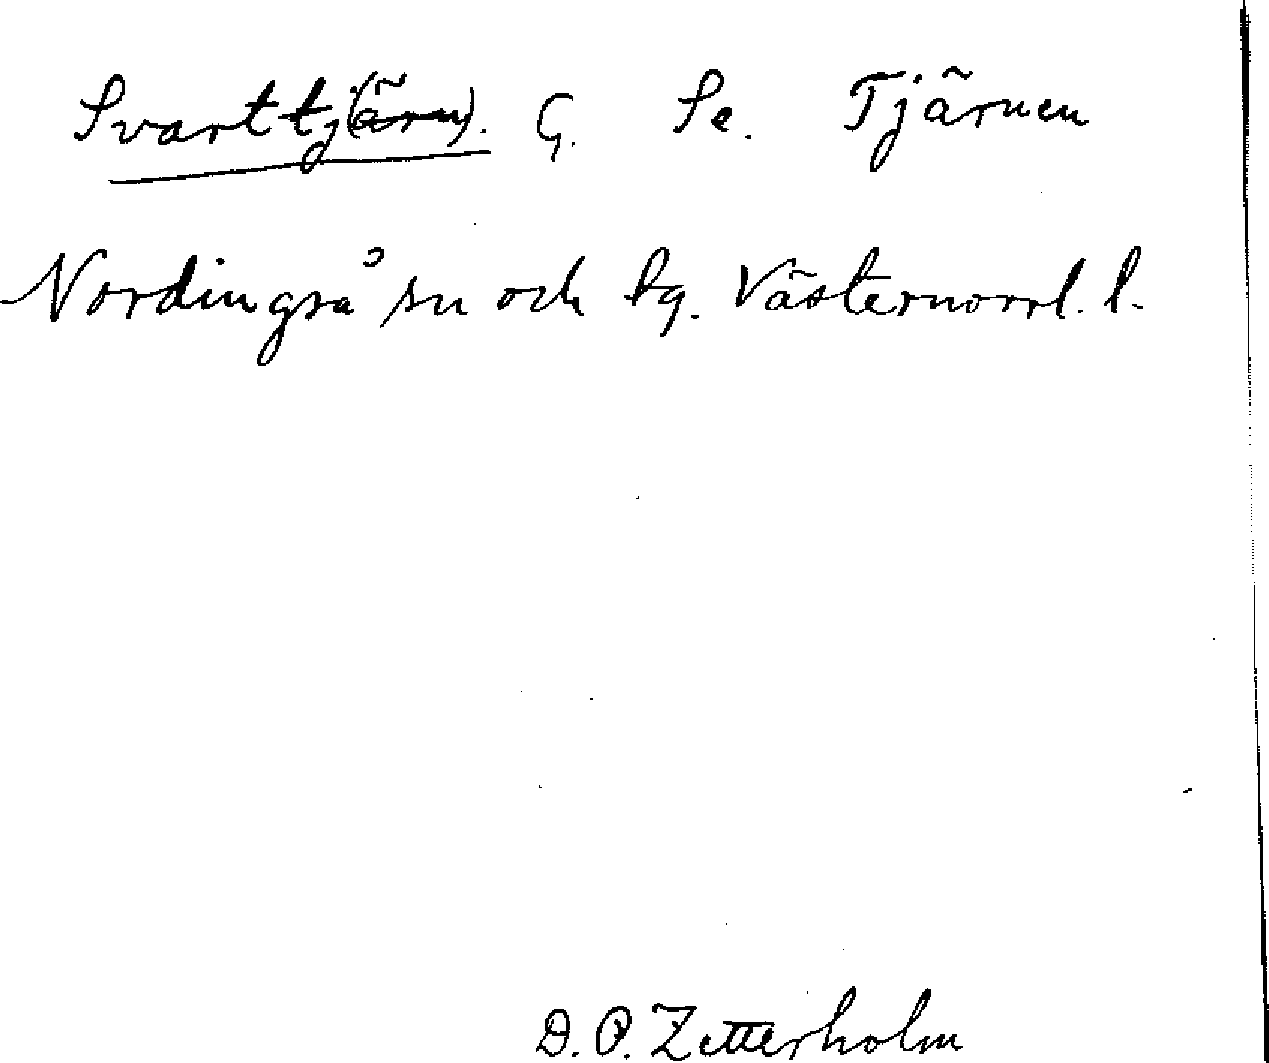 Svarttj(ärn). G. Se. Tjärnen
Nordingrå sn och tg. Västernorrl. l.
D. O. Zetterholm